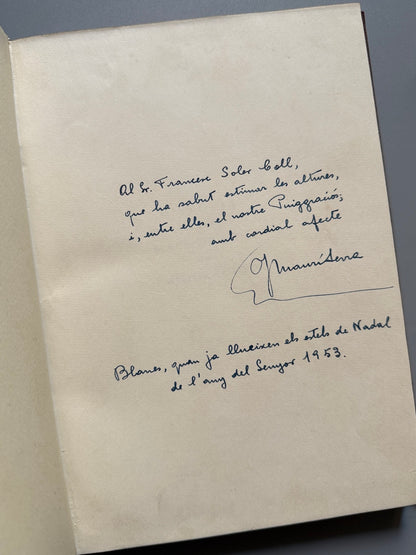 Al Sr. Francesc Soler Coll,
que ha sabut estimar les altures,
i, entre elles, el nostre Puiggraciós;
amb cordial afecte
J Mauri Serra
Blanes, quan ja llueixen els estels de Nadal
de l'any del Senyor 1953.